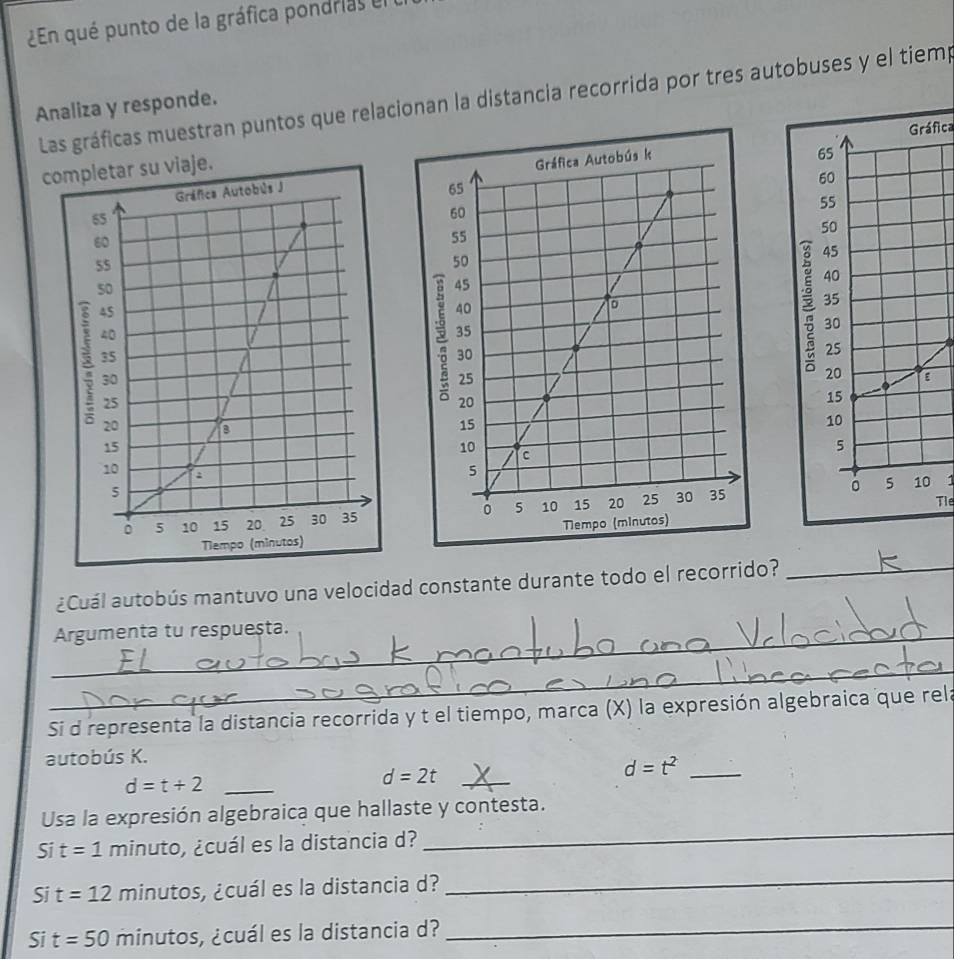 ¿En qué punto de la gráfica pondrías el
Analiza y responde.
Las gráficas muestran puntos que relacionan la distancia recorrida por tres autobuses y el tiemp
completar su viaje.
Gráfica Autobús J
65
60
55
50
45
40
35
30
25
20
15
10
5
Distancia (kilómetros)
B
0 5 10 15 20 25 30 35
Tiempo (minutos)
Gráfica Autobús k
65
60
55
50
45
40
35
30
25
20
15
10
5
Distancia (kilómetros)
D
C
0 5 10 15 20 25 30 35
Tiempo (minutos)
Gráfica
65
60
55
50
45
40
35
30
25
20
15
10
5
Distancia (kilómetros)
E
0 5 10 1
Tie
¿Cuál autobús mantuvo una velocidad constante durante todo el recorrido? K
Argumenta tu respuesta.
El autobus k mantubo una Velocidad
por que su grafica es una linea recta
Si d representa la distancia recorrida y t el tiempo, marca (X) la expresión algebraica que rela
autobús K.
d = t + 2 ____ d = 2t X d = t² ____
Usa la expresión algebraica que hallaste y contesta.
Si t = 1 minuto, ¿cuál es la distancia d?
Si t = 12 minutos, ¿cuál es la distancia d?
Si t = 50 minutos, ¿cuál es la distancia d?